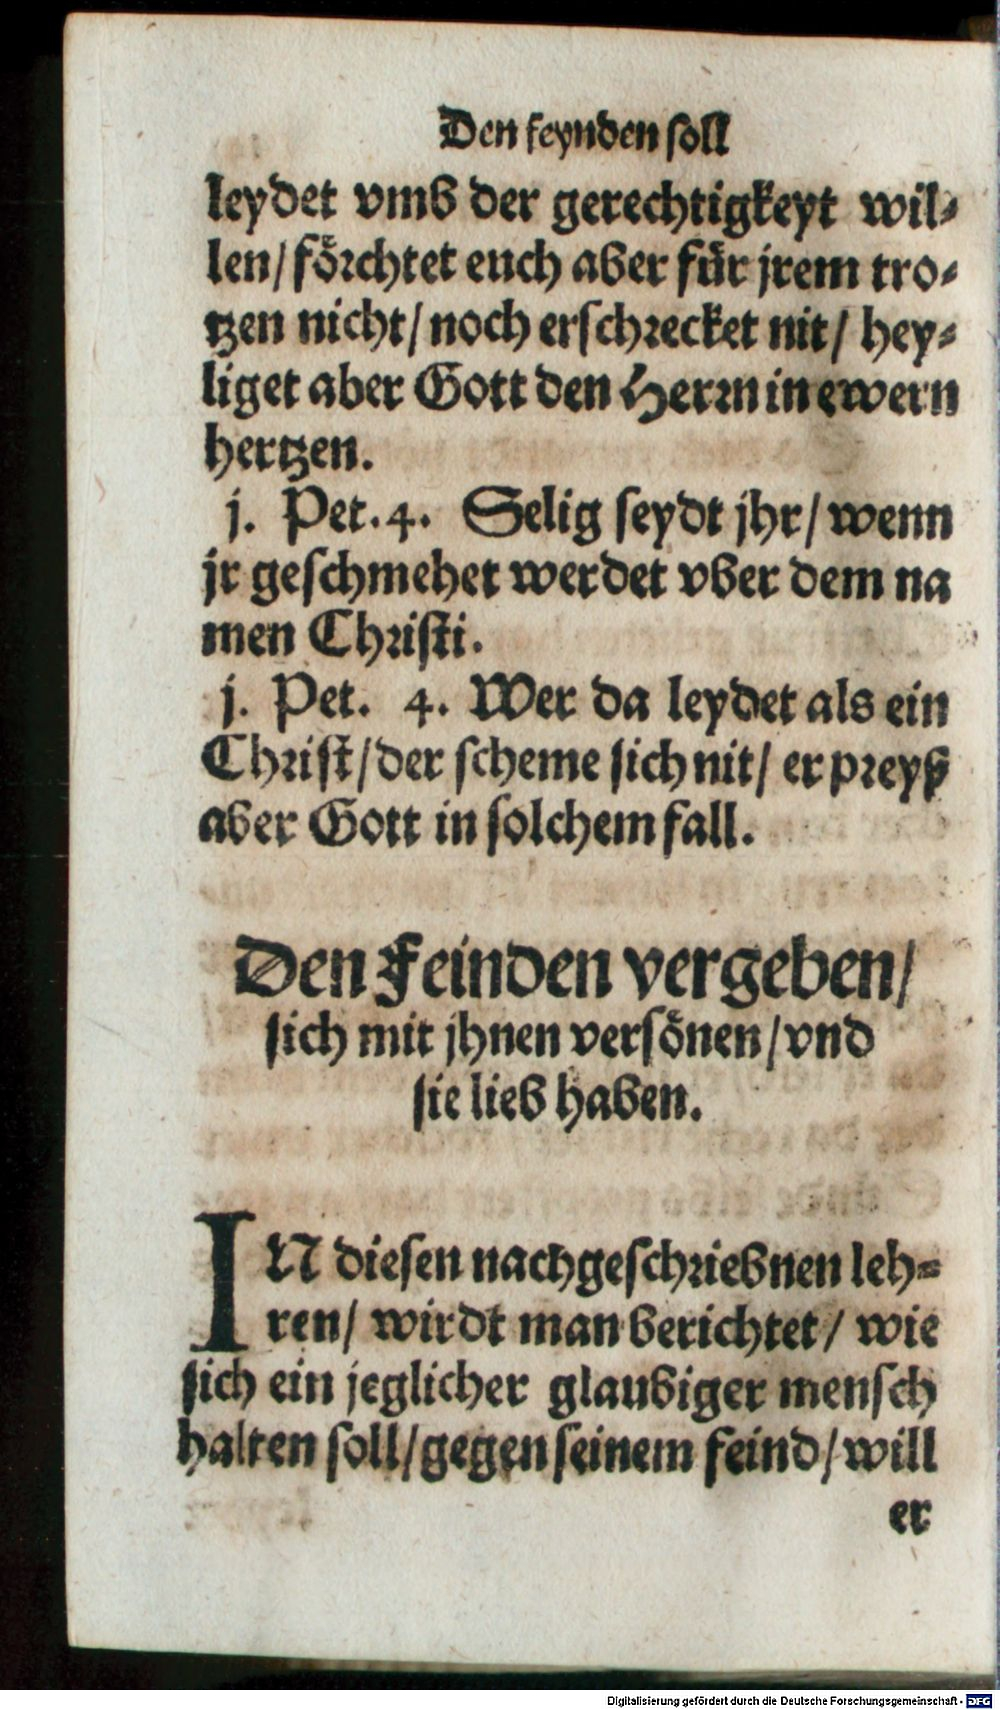 Den feynden soll
leydet vmb der gerechtigkeyt wil-
len/ foͤrchtet euch aber fuͤr jrem tro-
tzen nicht/ noch erschrecket nit/ hey-
liget aber Gott den Herrn in ewern
hertzen.
j. Pet. 4. Selig seydt jhr/ wenn
jr geschmehet werdet vber dem na
men Christi.
j. Pet. 4. Wer da leydet als ein
Christ/ der scheme sich nit/ er preyß
aber Gott in solchem fall.
Den Feinden vergeben/
sich mit jhnen versoͤnen/ vnd
sie lieb haben.
IN diesen nachgeschriebnen leh-
ren/ wirdt man berichtet/ wie
sich ein jeglicher glaubiger mensch
halten soll/ gegen seinem feind/ will
er
Digitalisierung gefördert durch die Deutsche Forschungsgemeinschaft - DFG